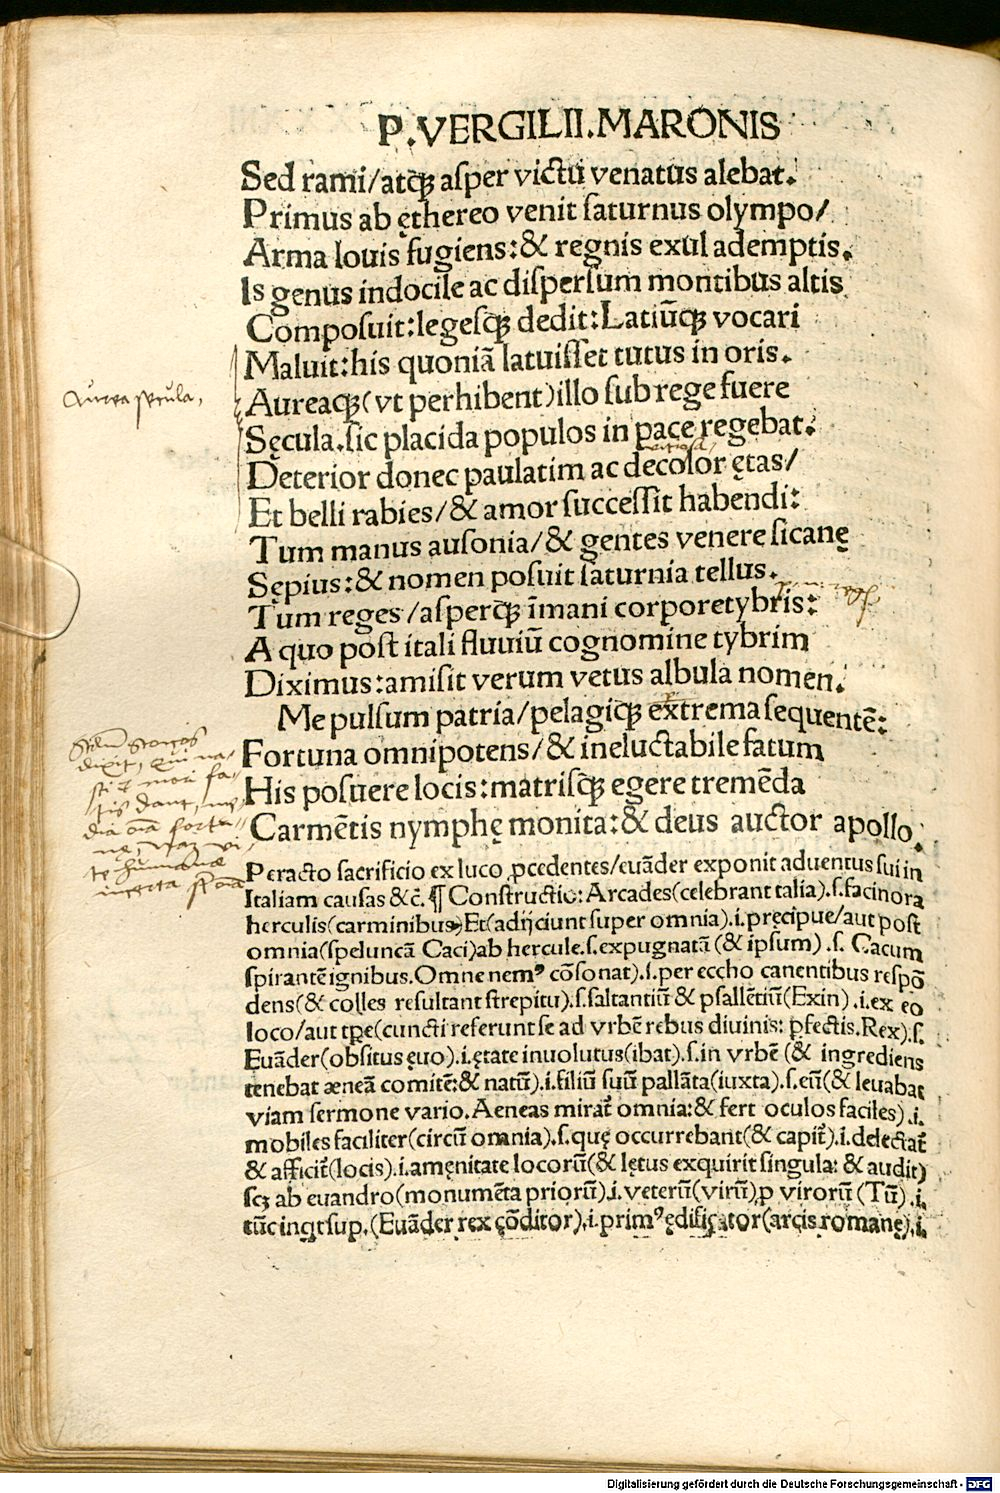 P.VERGILII.MARONIS
Sed rami/atqꝫ aſper victu venatus alebat.
Primus ab ęthereo venit ſaturnus olympo/
Arma Iouis fugiens:& regnis exul ademptis.
Is genus indocile ac diſperſum montibus altis
Compoſuit:legeſqꝫ dedit:Latiūqꝫ vocari
Maluit:his quoniā latuiſſet tutus in oris.
Aurea ſecula,
Aureaqꝫ(vt perhibent)illo ſub rege fuere
Sęcula.ſic placida populos in pace regebat.
Deterior donec paulatim ac decolor ętas/
Et belli rabies/& amor ſucceſſit habendi:
Tum manus auſonia/& gentes venere ſicanę
Sępius:& nomen poſuit ſaturnia tellus.
Tum reges/aſperqꝫ īmani corporetybris:
A quo poſt itali fluuiū cognomine tybrim
Diximus:amiſit verum vetus albula nomen.
Me pulſum patria/pelagiqꝫ extrema ſequentē:
dixit, qui na-
Fortuna omnipotens/& ineluctabile fatum
His poſuere locis:matriſqꝫ egere tremēda
Carmētis nymphę monita:& deus auctor apollo.
te humanæ
incerta
Peracto ſacrificio ex luco ꝓcedentes/euāder exponit aduentus ſui in
Italiam cauſas &c̄. ¶ Conſtructio: Arcades(celebrant talia).ſ.facinora
herculis(carminibus)Et(adijciunt ſuper omnia).i.pręcipue/aut poſt
omnia(ſpeluncā Caci)ab hercule.ſ.expugnatā(& ipſum).ſ. Cacum
ſpirantē ignibus.Omne nemꝰ cōſonat).ſ.per eccho canentibus reſpō
dens(& colles reſultant ſtrepitu).ſ.ſaltantiū & pſallētiū(Exin).i.ex eo
loco/aut tꝑe(cuncti referunt ſe ad vrbē rebus diuinis: ꝑfectis.Rex).ſ.
Euāder(obſitus ęuo).i.ętate inuolutus(ibat).ſ.in vrbē (& ingrediens
tenebat æneā comitē:& natū).i.filiū ſuū pallāta(iuxta).ſ.eū(& leuabat
viam ſermone vario.Aeneas mirat̄ omnia:& fert oculos faciles).i.
mobiles faciliter(circū omnia).ſ.quę occurrebant(& capit̄).i.delectat̄
& afficit̄(locis).i.amęnitate locorū(& lętus exquirit ſingula: & audit)
ſcꝫ ab euandro(monumēta priorū).i.veterū(virū)ꝓ virorū (Tū).i.
tūc inqt ſup.(Euāder rex cōditor).i.primꝰ ędificator(arcis romanę).i.
Digitalisierung gefördert durch die Deutsche Forschungsgemeinschaft - DFG